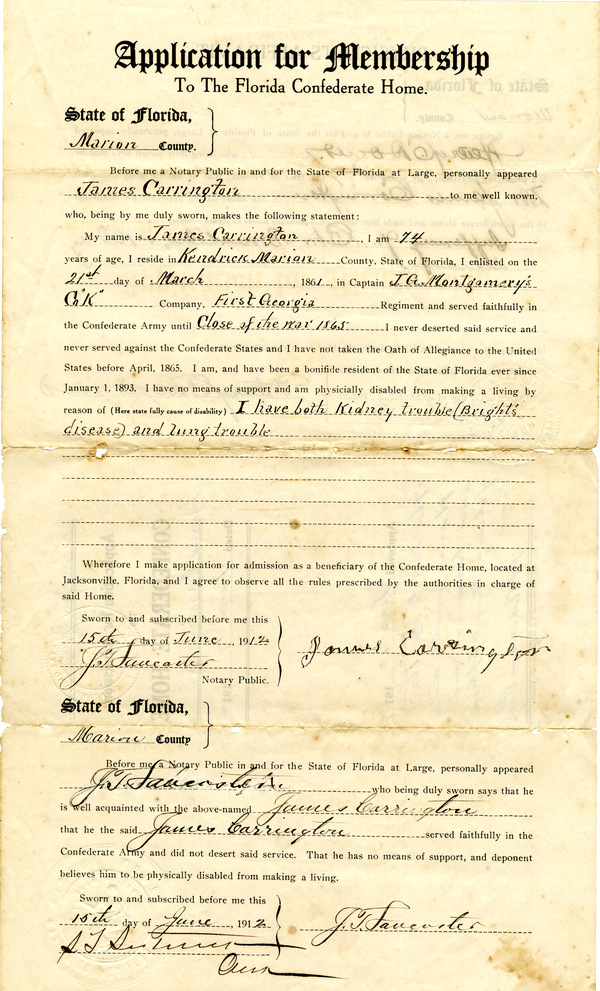 Application for Membership
To The Florida Confederate Home.
State of Florida,
Marion County.
Before me a Notary Public in and for the State of Florida at Large, personally appeared
James Carrington to me well known,
who, being by me duly sworn, makes the following statement:
My name is James Carrington, I am 74
years of age, I reside in Kendrick Marion County, State of Florida, I enlisted on the
21st day of March, 1861, in Captain J.G. Montgomery's
Co "K" Company, First Georgia Regiment and served faithfully in
the Confederate Army until Close of the war 1865 I never deserted said service and
never served against the Confederate States and I have not taken the Oath of Allegiance to the United
States before April, 1865. I am, and have been a bonifide resident of the State of Florida ever since
January 1, 1893. I have no means of support and am physicially disabled from making a living by
reason of (Here state fully cause of disability) I have both Kidney trouble (Bright's
disease) and lung trouble
Wherefore I make application for admission as a beneficiary of the Confederate Home, located at
Jacksonville, Florida, and I agree to observe all the rules prescribed by the authorities in charge of
said Home.
Sworn to and subscribed before me this
15th day of June, 1912
James Carrington
J.T. Lancaster
Notary Public.
State of Florida,
Marion County
Before me a Notary Public in and for the State of Florida at Large, personally appeared
J.T. who being duly sworn says that he
is well acquainted with the above-named James Carrington
that he the said James Carrington served faithfully in the
Confederate Army and did not desert said service. That he has no means of support, and deponent
believes him to be physically disabled from making a living.
Sworn to and subscribed before me this
15th day of June, 1912
J.T. Lancaster